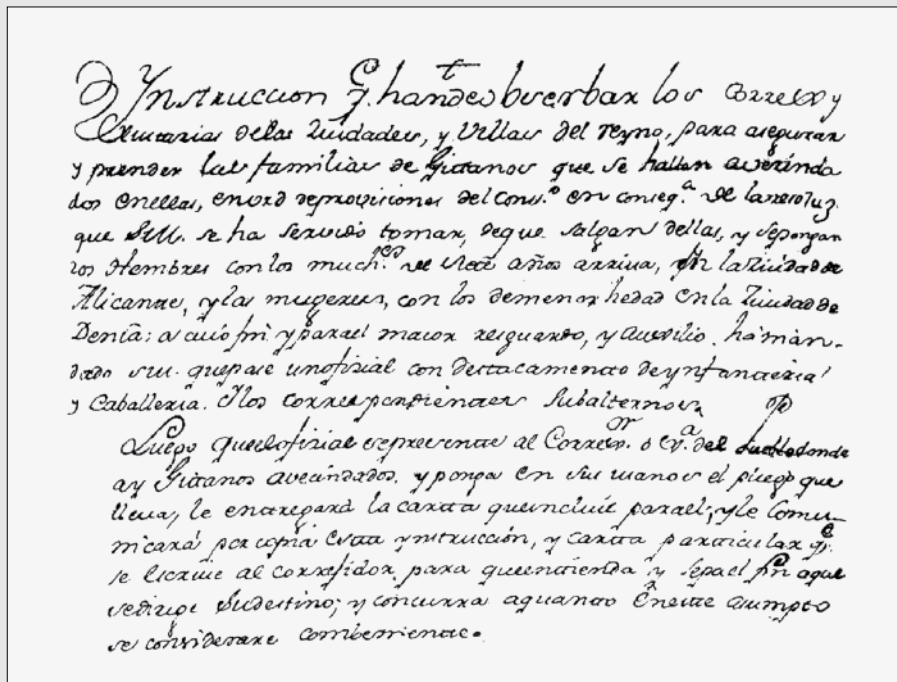 Ynstruccion q. han de obserbar los Correxs y
Justicias delas Ziudades, y Villas del reyno, para asegurar
y prender las familias de Gittanos que se hallan avezinda
dos enellas, en vrd deprovisiones del Cons.º en conseq.ª de laresoluz.
que S.M. se ha servido tomar, deque salgan dellas, y sepongan
los Hombres con los much.ᵒˢ de siete años arriva, en la Ziudad de
Alicante, y las mugeres, con los demenor hedad en la Ziudad de
Denia: a cuio fin y parael maior resguardo, y auxilio, há man-
dado S.M. quepase unofizial con destacamento de ynfanteria
y Caballeria. Y los correspondientes Subalternos
Luego queelofizial sepresente al Correx.ᵒʳ o en.ª del Pueblo donde
ay Gittanos avecindados, y ponga en sus manos el pliego que
lleva, le entregará la cartta queincluie parael; y le Comu-
nicará por copia Esta ynstrucción, y cartta particular q.ᵉ
se Escrive al correjidor para queentienda y sepael fin aque
sedirige Sudestino; y concurra aquanto Eneste asumpto
se considerare combeniente.